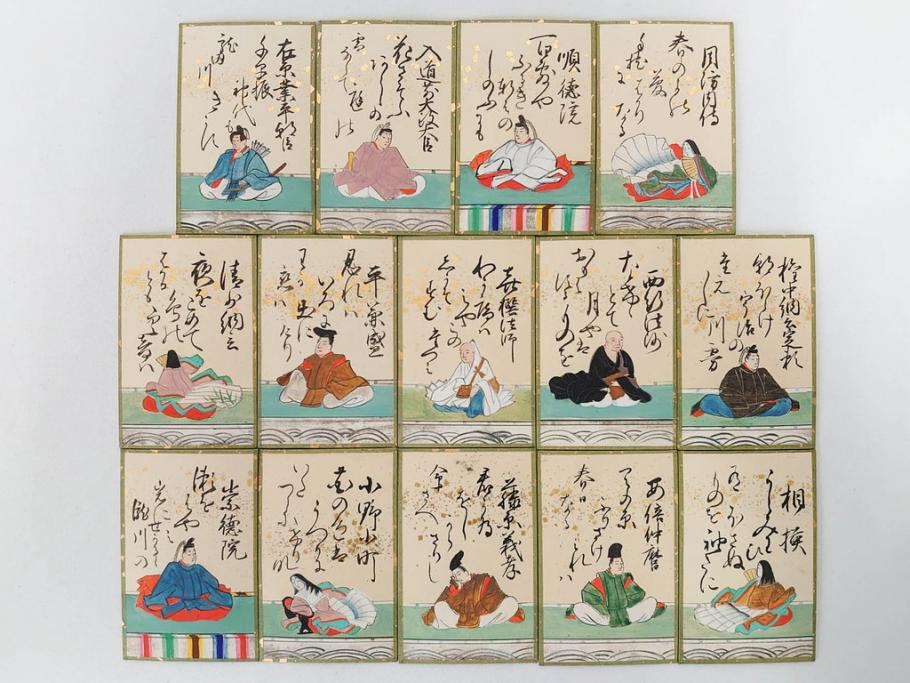 周防内侍
春のよの
夢はかりなる
手枕に
順徳院
百敷や
ふるき軒はの
しのふにも
入道前太政大臣
花さそふ
あらしの
庭の
雪ならて
在原業平朝臣
千早振
神代も
きかす
龍田川
権中納言定頼
朝ほらけ
宇治の
川霧
西行法師
月やは
ものを
喜撰法師
わか庵は
みやこの
たつみ
しかそすむ
平兼盛
忍れと
いろに
出にけり
わか恋は
清少納言
夜をこめて
鳥の
相模
うらみわひ
ほさぬ
袖たに
安倍仲麿
天の原
ふりさけ
みれは
春日なる
藤原義孝
君か為
をしからさりし
命さへ
小野小町
花の色は
うつりに
けりな
いたつらに
崇徳院
瀬をはやみ
岩にせかるゝ
瀧川の